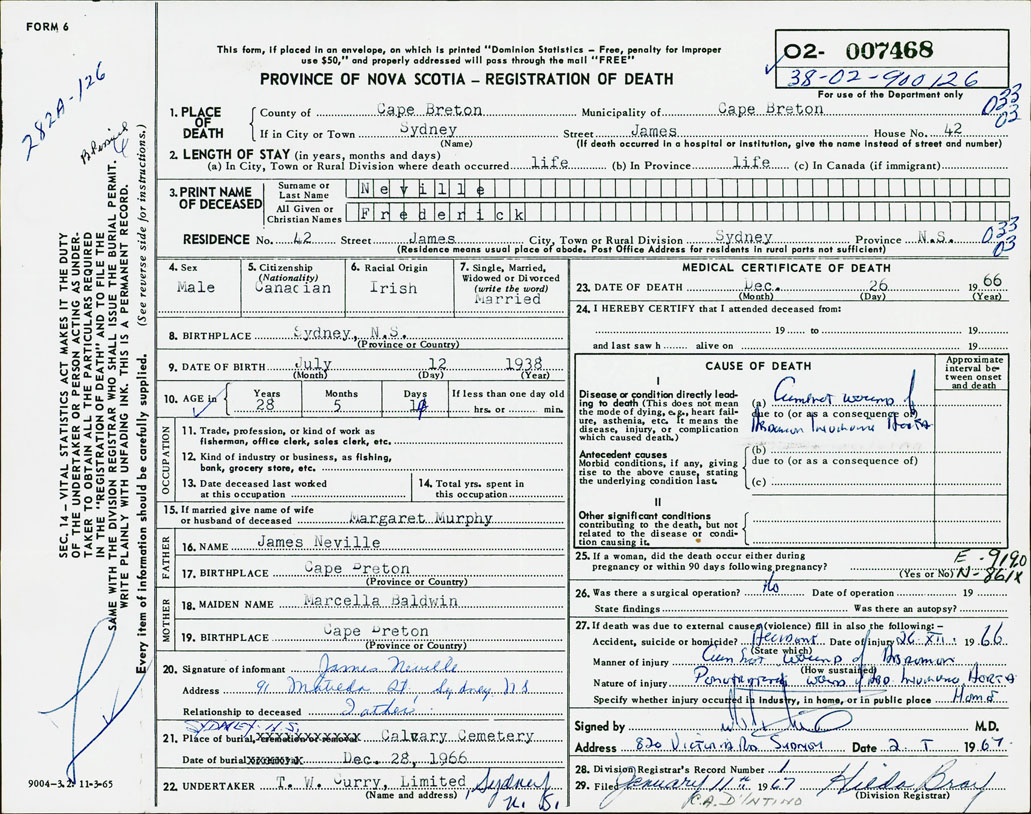 FORM 6
This form, if placed in an envelope, on which is printed "Dominion Statistics – Free, penalty for improper
use $50," and properly addressed will pass through the mail "FREE"
PROVINCE OF NOVA SCOTIA – REGISTRATION OF DEATH
02- 007468
38-02-900126
For use of the Department only
282A-126
033
02
1. PLACE OF DEATH
County of Cape Breton Municipality of Cape Breton
If in City or Town Sydney Street James House No. 42
(Name) (If death occurred in a hospital or institution, give the name instead of street and number)
2. LENGTH OF STAY (in years, months and days)
(a) In City, Town or Rural Division where death occurred life (b) In Province life (c) In Canada (if immigrant)
3. PRINT NAME OF DECEASED
Surname or Last Name Neville
All Given or Christian Names Frederick
RESIDENCE No. 42 Street James City, Town or Rural Division Sydney Province N.S.
(Residence means usual place of abode. Post Office Address for residents in rural parts not sufficient)
033
03
4. Sex
Male
5. Citizenship
(Nationality)
Canacian
6. Racial Origin
Irish
7. Single, Married,
Widowed or Divorced
(write the word)
Married
8. BIRTHPLACE Sydney, N.S.
(Province or Country)
9. DATE OF BIRTH July 12 1938
(Month) (Day) (Year)
10. AGE in Years 28 Months 5 Days 14 If less than one day old
hrs. or min.
OCCUPATION
11. Trade, profession, or kind of work as
fisherman, office clerk, sales clerk, etc.
12. Kind of industry or business, as fishing,
bank, grocery store, etc.
13. Date deceased last worked
at this occupation
14. Total yrs. spent in
this occupation
15. If married give name of wife
or husband of deceased Margaret Murphy
FATHER
16. NAME James Neville
17. BIRTHPLACE Cape Breton
(Province or Country)
MOTHER
18. MAIDEN NAME Marcella Baldwin
19. BIRTHPLACE Cape Breton
(Province or Country)
20. Signature of informant James Neville
Address 91 Matilda St, Sydney NS
Relationship to deceased Father
SYDNEY N.S.
21. Place of burial, cremation or removal Calvary Cemetery
Date of burial Dec. 28, 1966
22. UNDERTAKER T. W. Curry, Limited, Sydney
(Name and address) N. S.
MEDICAL CERTIFICATE OF DEATH
23. DATE OF DEATH Dec. 26 1966
(Month) (Day) (Year)
24. I HEREBY CERTIFY that I attended deceased from:
19 to 19
and last saw h alive on 19
CAUSE OF DEATH
Approximate
interval be-
tween onset
and death
I
Disease or condition directly lead-
ing to death (This does not mean
the mode of dying, e.g., heart fail-
ure, asthenia, etc. It means the
disease, injury, or complication
which caused death.)
(a) Gunshot wound of
due to (or as a consequence of)
Abdomen Involving Aorta
Antecedent causes
Morbid conditions, if any, giving
rise to the above cause, stating
the underlying condition last.
(b)
due to (or as a consequence of)
(c)
II
Other significant conditions
contributing to the death, but not
related to the disease or condi-
tion causing it.
25. If a woman, did the death occur either during
pregnancy or within 90 days following pregnancy?
(Yes or No)
E-9190
N-861X
26. Was there a surgical operation? No Date of operation 19
State findings Was there an autopsy?
27. If death was due to external causes (violence) fill in also the following:–
Accident, suicide or homicide? Date of injury 26 XII 1966
(State which)
Manner of injury Gunshot wound of Abdomen
(How sustained)
Nature of injury Penetrating wound of Abd Involving Aorta
Specify whether injury occurred in industry, in home, or in public place Home
Signed by M.D.
Address 820 Victoria Rd Sydney Date 2. I 1967
28. Division Registrar's Record Number 1
29. Filed January 11th 1967 Hilda Bray
(Division Registrar)
R.A. D'INTINO
SEC. 14 – VITAL STATISTICS ACT MAKES IT THE DUTY
OF THE UNDERTAKER OR PERSON ACTING AS UNDER-
TAKER TO OBTAIN ALL THE PARTICULARS REQUIRED
IN THE "REGISTRATION OF DEATH" AND TO FILE THE
SAME WITH THE DIVISION REGISTRAR WHO SHALL ISSUE THE BURIAL PERMIT.
WRITE PLAINLY WITH UNFADING INK. THIS IS A PERMANENT RECORD.
Every item of information should be carefully supplied. (See reverse side for instructions.)
9004-3.2 11-3-65